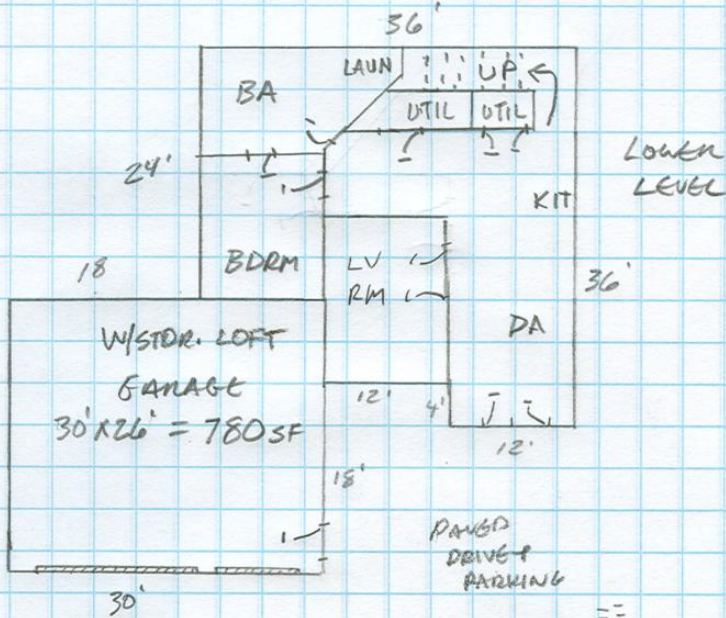 36'
LAUN
UP
BA
UTIL
UTIL
LOWER
LEVEL
24'
KIT
18
BDRM
LV
RM
36'
W/STOR. LOFT
DA
GARAGE
30'X26' = 780SF
12'
4'
12'
18'
PAVED
DRIVE+
PARKING
30'